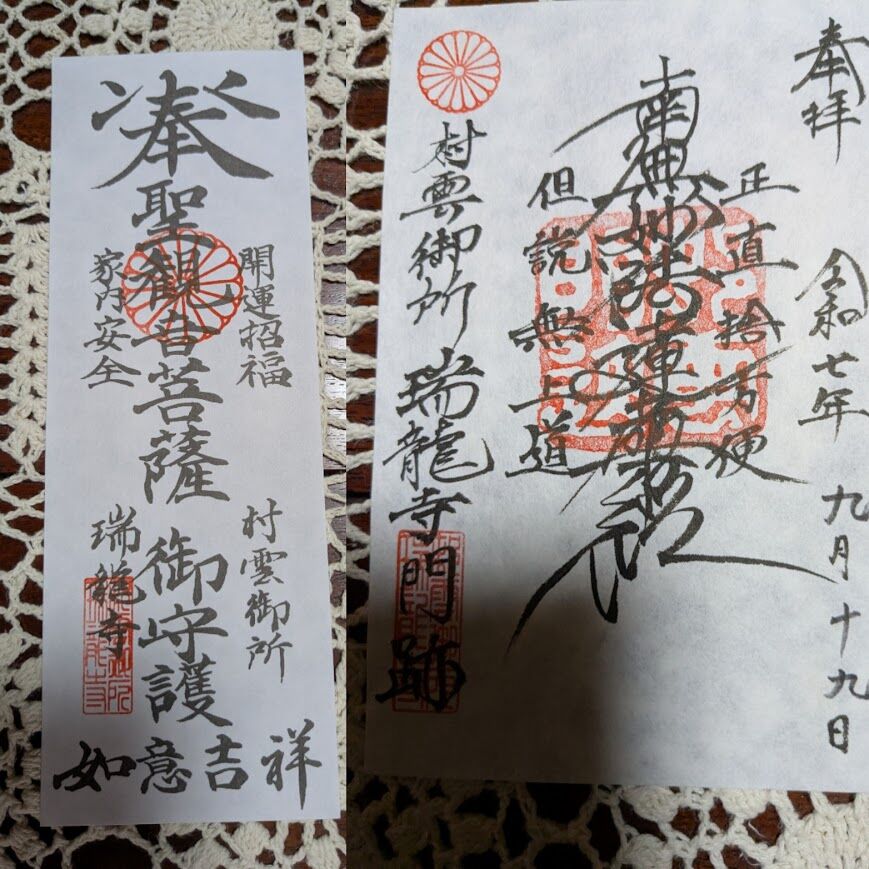 奉
聖観音菩薩
御守護
開運招福
家内安全
村雲御所
瑞龍寺
如意吉祥
奉拝
令和七年 九月十九日
正直捨方便
南無妙法蓮華経
但説無上道
村雲御所 瑞龍寺門跡